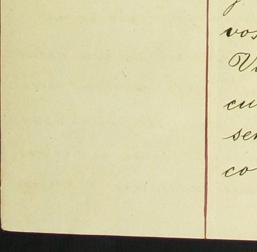 vos
Vi
cu
ser
co